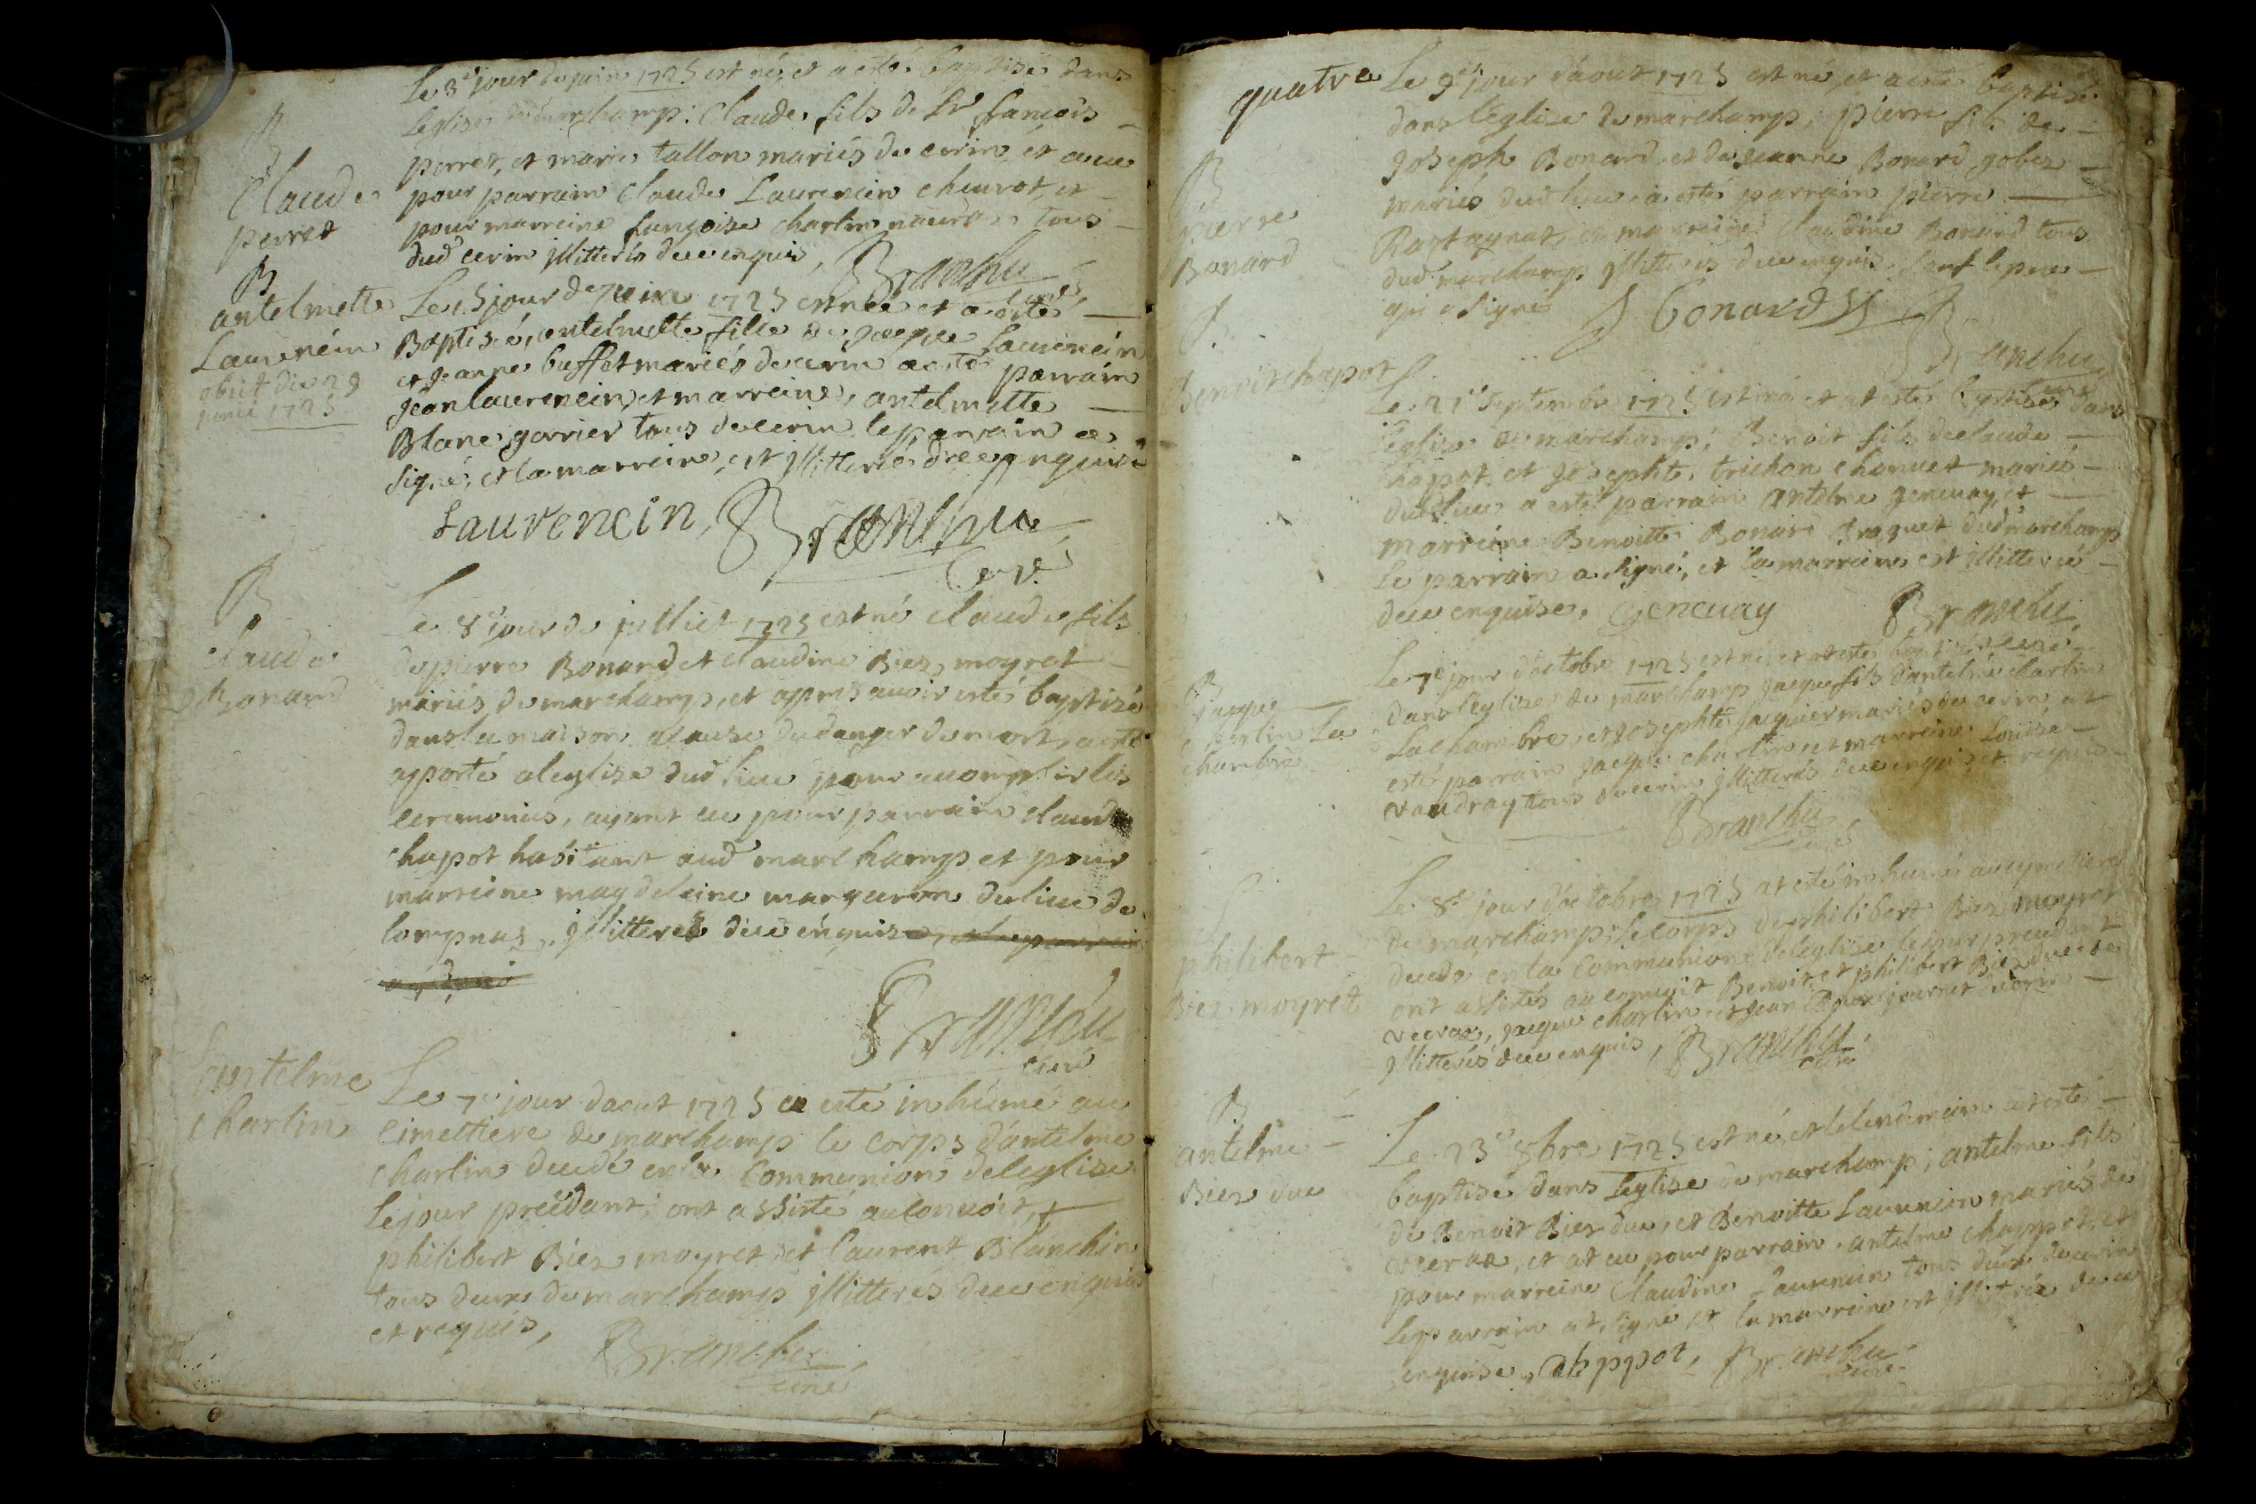 B
Claude
perret
Le 3e jour de juin 1725 est né, et a esté baptisé dans
Leglise de marchamp: Claude fils de Sr francois
perret, et marie tallon mariés de cerin et a eu
pour parrain Claude Laurencin chevrot, et
pour marreine francoise charlin tous
dud cerin illitterés de ce enquis, Branchu
curé
B
antelmette
Laurencin
obiit die 29
junii 1725
Le 15 jour de juin 1725 est née et a esté
Baptisée, antelmette fille de jacque Laurencin
et jeanne buffet mariés de cerin a esté parrain
jean laurencin, et marreine, antelmette
Blanc garrier tous de cerin le parrain a
signé, et la marreine est illitterée de ce enquise
Laurencin, Branchu
Curé
B
Claude
Bonard
Le 8e jour de jullict 1725 est né claude fils
de pierre Bonard et claudine Biez moyret
mariés de marchamp, et aprés avoir esté baptizé
dans la maison a cause du danger de mort, a esté
apporté a leglise dud lieu pour accomplir les
ceremonies, ayant eu pour parrain claude
chapot habitant aud marchamp et pour
marreine magdeleine margueron du lieu de
lompnas, illitteres de ce enquis
Branchu
curé
antelme
charlin
Le 7e jour daout 1725 a esté inhumé au
cimettiere de marchamp le corps dantelme
charlin decedé en la Communion de leglise
le jour precedant; ont assisté au convoit,
philibert Biez moyret, et laurent Blanchin
tous deux de marchamp illitterés de ce enquis
et requis, Branchu
curé
quatre
B
pierre
Bonard
Le 9e jour daout 1725 est né, et a esté baptisé
dans leglise de marchamp, pierre fils de
joseph Bonard et de jeanne Bonard gobez
mariés dud lieu a esté parrain pierre
Rostagnat, et marreine claudine Bonard tous
dud marchamp illitterés de ce enquis, sauf le pere
qui a signé J Bonard
Branchu
B
Benoit chapot
Le 21e septembre 1725 est né et at esté baptisé dans
leglise de marchamp; Benoit fils de claude
chapot et josephte trichon chanuet mariés
dud lieu a esté parrain antelme genevay, et
marreine Benoitte Bonard dud marchamp
Le parrain a signé, et la marreine est illitterée
de ce enquise, Genevay Branchu
curé
B
jacque
charlin La
chambre
Le 7e jour doctobre 1725 est né et at esté baptisé
dans leglise de marchamp jacque fils dantelme charlin
Lachambre, et josephte jacquier mariés de cerin, at
esté parrain jacque charlin, et marreine Louise
vaudray tous de cerin illitterés de ce enquis et requis
Branchu
philibert
Biez moyret
Le 8e jour doctobre 1725 at esté inhumé au cymetiere
de marchamp; le corps de philibert Biez moyret
decedé en la Communion de leglise le jour precedant
ont assistés au convoit Benoit, et philibert Biez duc de
jacque charlin et jean Roux journet
illitterés de ce enquis, Branchu
curé
B
antelme
Biez duc
Le 23e 8bre 1725 est né, et le lendemain at esté
baptisé dans Leglise de marchamp; antelme fils
de Benoit Biez duc, et Benoitte Laurencin mariés de
et at eu pour parrain antelme chappot, et
pour marreine Claudine Laurencin tous deux de cerin
Le parrain at signé et la marreine est illitterée de ce
enquise, Chappot, Branchu
curé